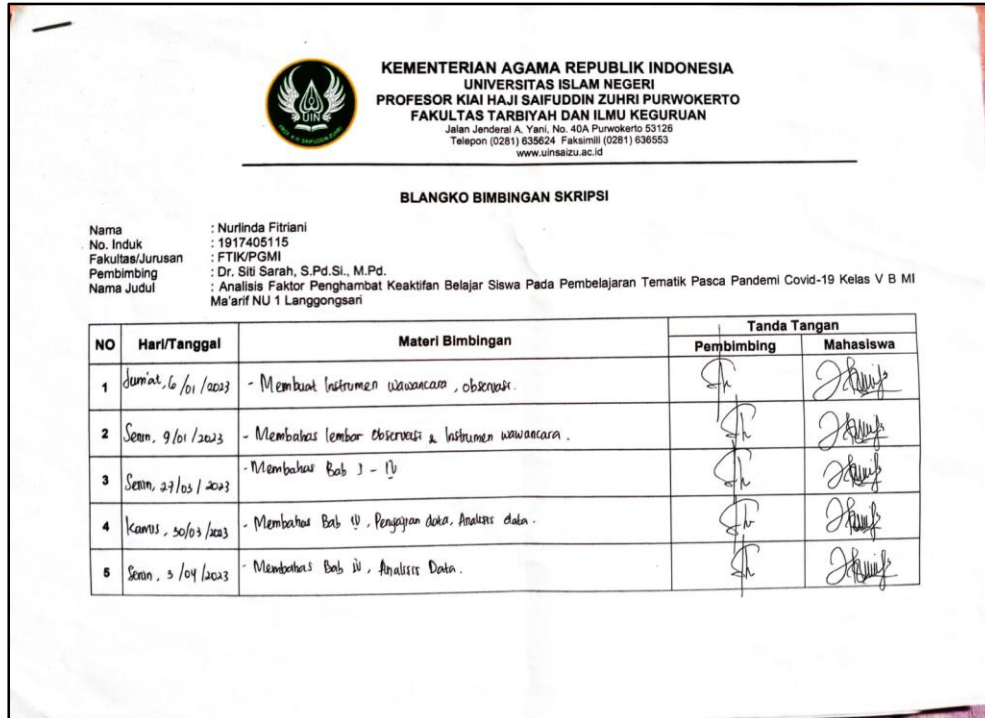 KEMENTERIAN AGAMA REPUBLIK INDONESIA
UNIVERSITAS ISLAM NEGERI
PROFESOR KIAI HAJI SAIFUDDIN ZUHRI PURWOKERTO
FAKULTAS TARBIYAH DAN ILMU KEGURUAN
Jalan Jenderal A. Yani, No. 40A Purwokerto 53126
Telepon (0281) 635624 Faksimili (0281) 636553
www.uinsaizu.ac.id
UIN
BLANGKO BIMBINGAN SKRIPSI
Nama : Nurlinda Fitriani
No. Induk : 1917405115
Fakultas/Jurusan : FTIK/PGMI
Pembimbing : Dr. Siti Sarah, S.Pd.Si., M.Pd.
Nama Judul : Analisis Faktor Penghambat Keaktifan Belajar Siswa Pada Pembelajaran Tematik Pasca Pandemi Covid-19 Kelas V B MI
Ma'arif NU 1 Langgongsari
NO Hari/Tanggal Materi Bimbingan Tanda Tangan
Pembimbing Mahasiswa
1 Jum'at, 6/01/2023 - Membuat Instrumen wawancara, observasi.
2 Senin, 9/01/2023 - Membahas lembar observasi & Instrumen wawancara.
3 Senin, 27/03/2023 - Membahas Bab I - IV
4 Kamis, 30/03/2023 - Membahas Bab IV, Penyajian data, Analisis data.
5 Senin, 3/04/2023 - Membahas Bab IV, Analisis Data.